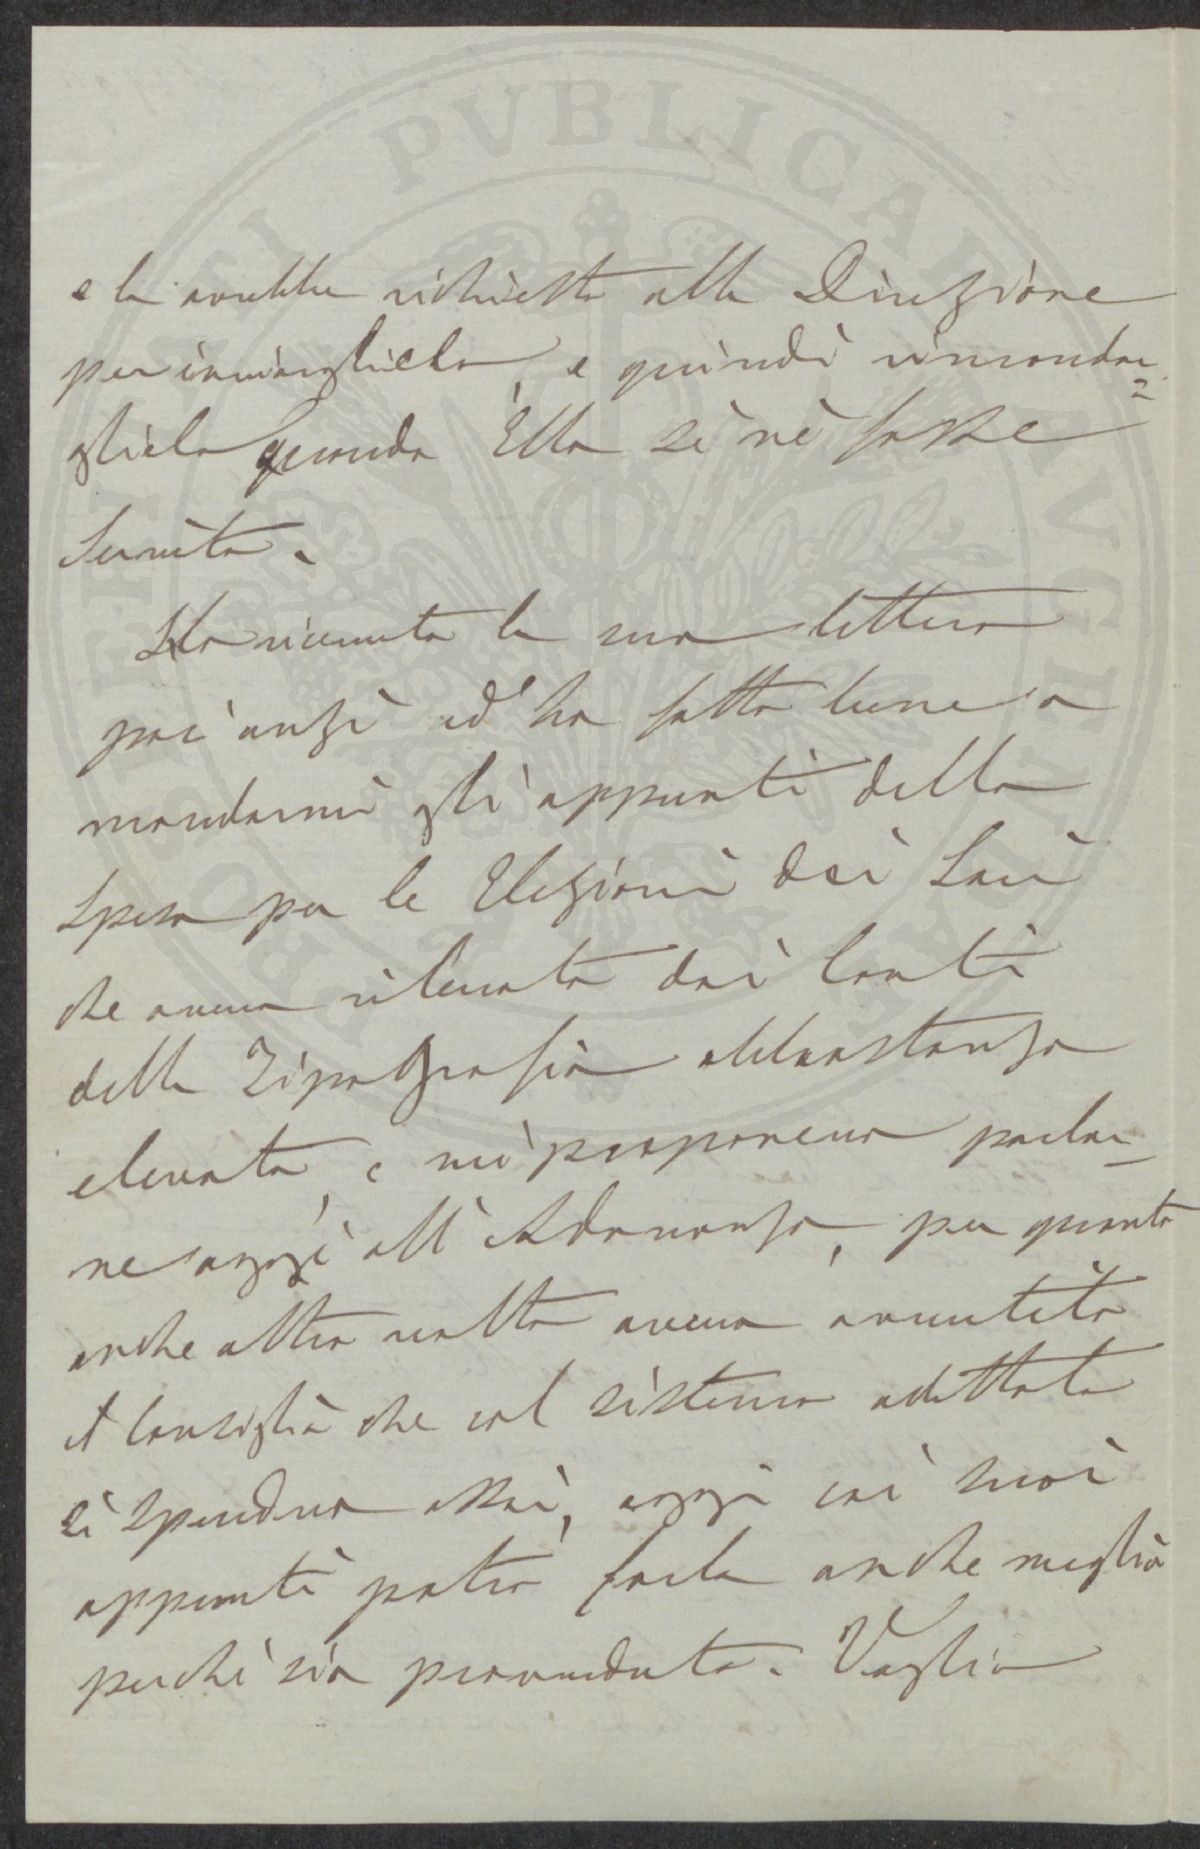 e la avrebbe richiesta alla Direzione
per inviargliela, e quindi rimandar=
gliela quando Ella si nè fosse
servita.
Ho ricevuta la sua lettera
poc'anzi ed ha fatto bene a
mandarmi gli appunti della
spesa per le Elezioni dei Soci
che aveva rilevata dai Conti
della Tipografia abbastanza
elevata, e mi proponeva parlar-
ne oggi all'Adunanza, per quanto
anche altra volta aveva avvertito
il Consiglio che col sistema adottato
si spendeva assai, oggi coi suoi
appunti potrò farlo anche meglio
perchè sia provveduto. Voglia
PVBLICAE